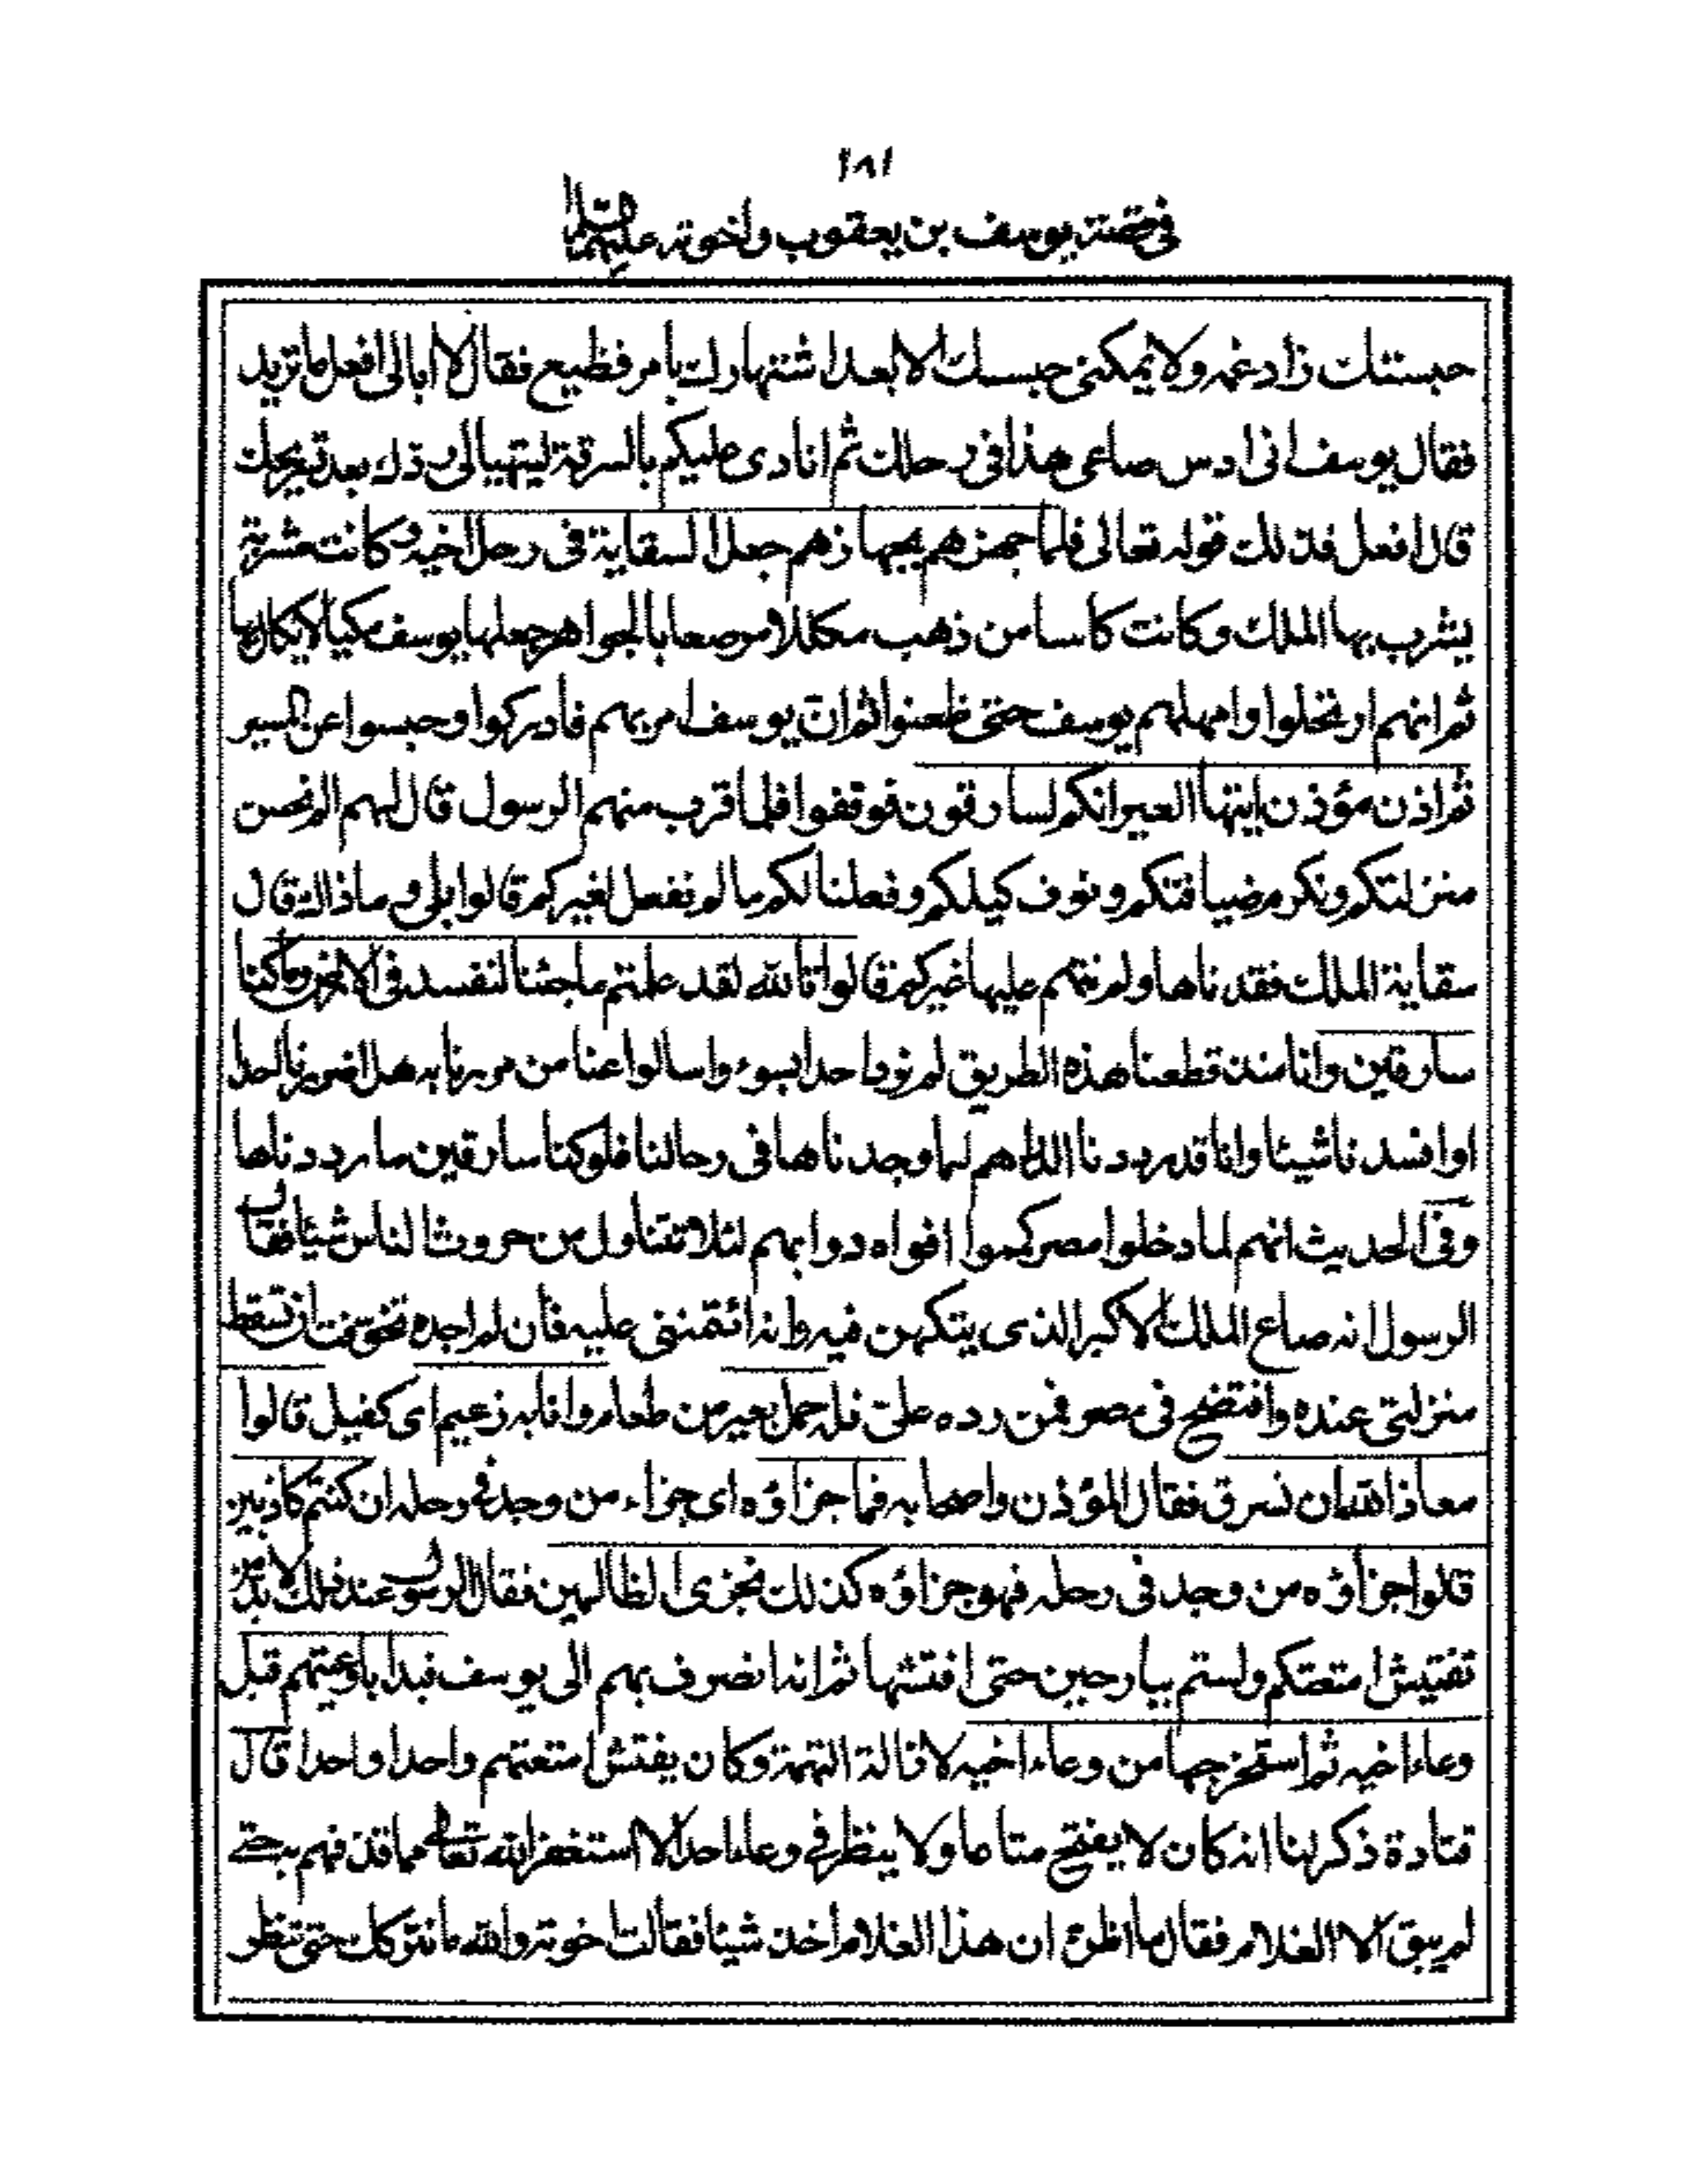 ١٨١
فى قصة يوسف بن يعقوب واخوته عليهم السلام
حبستك زاد غمه ولا يمكننى حبسك الا بعد اشتهارك بامر فظيع فقال لا ابالى افعل ما تريد
فقال يوسف انى ادس صاعى هذا فى رحلك ثم انادى عليكم بالسرقة ليتهيا لى ردك بعد تسريحك
قال افعل فذلك قوله تعالى فلما جهزهم بجهازهم جعل السقاية فى رحل اخيه وكانت مشربة
يشرب بها الملك وكانت كاسا من ذهب مكللا مرصعا بالجواهر جعلها يوسف مكيالا يكال بها
ثم انهم ارتحلوا وامهلهم يوسف حتى ظعنوا ثم ان يوسف امر بهم فادركوا وحبسوا عن السير
ثم اذن مؤذن ايتها العير انكم لسارقون فوقفوا فلما قرب منهم الرسول قال لهم الم نحسن
منزلتكم ونكرم ضيافتكم ونوف كيلكم وفعلنا لكم ما لم نفعل لغيركم قالوا بلى وما ذاك قال
سقاية الملك فقدناها ولم نتهم عليها غيركم قالوا تالله لقد علمتم ما جئنا لنفسد فى الارض وما كنا
سارقين وانا منذ قطعنا هذه الطريق لم نوذ احدا بسوء واسالوا عنا من مررنا به هل اضررنا احدا
او افسدنا شيئا وانا قد رددنا الدراهم لما وجدناها فى رحالنا فلو كنا سارقين ما رددناها
وفى الحديث انهم لما دخلوا مصر كمموا افواه دوابهم لئلا تتناول من حروث الناس شيئا فقال
الرسول انه صاع الملك الاكبر الذى يتكهن فيه وانه ائتمننى عليه فان لم اجده تخوفت ان تسقط
منزلتى عنده وافتضح فى مصر فمن رده على فله حمل بعير من طعام وانا به زعيم اى كفيل قالوا
معاذ الله ان نسرق فقال المؤذن واصحابه فما جزاؤه اى جزاء من وجد فى رحله ان كنتم كاذبين
قلوا جزاؤه من وجد فى رحله فهو جزاؤه كذلك نجزى الظالمين فقال الرسول عند ذلك لا بد من
تفتيش امتعتكم ولستم ببارحين حتى افتشها ثم انه انصرف بهم الى يوسف فبدا باوعيتهم قبل
وعاء اخيه ثم استخرجها من وعاء اخيه لازالة التهمة وكان يفتش امتعتهم واحدا واحدا قال
قتادة ذكر لنا انه كان لا يفتح متاعا ولا ينظر فى وعاء احد الا استغفر الله تعالى مما قذفهم به حتى
لم يبق الا الغلام فقال ما اظن ان هذا الغلام اخذ شيئا فقالت اخوته والله ما نتركك حتى تنظر